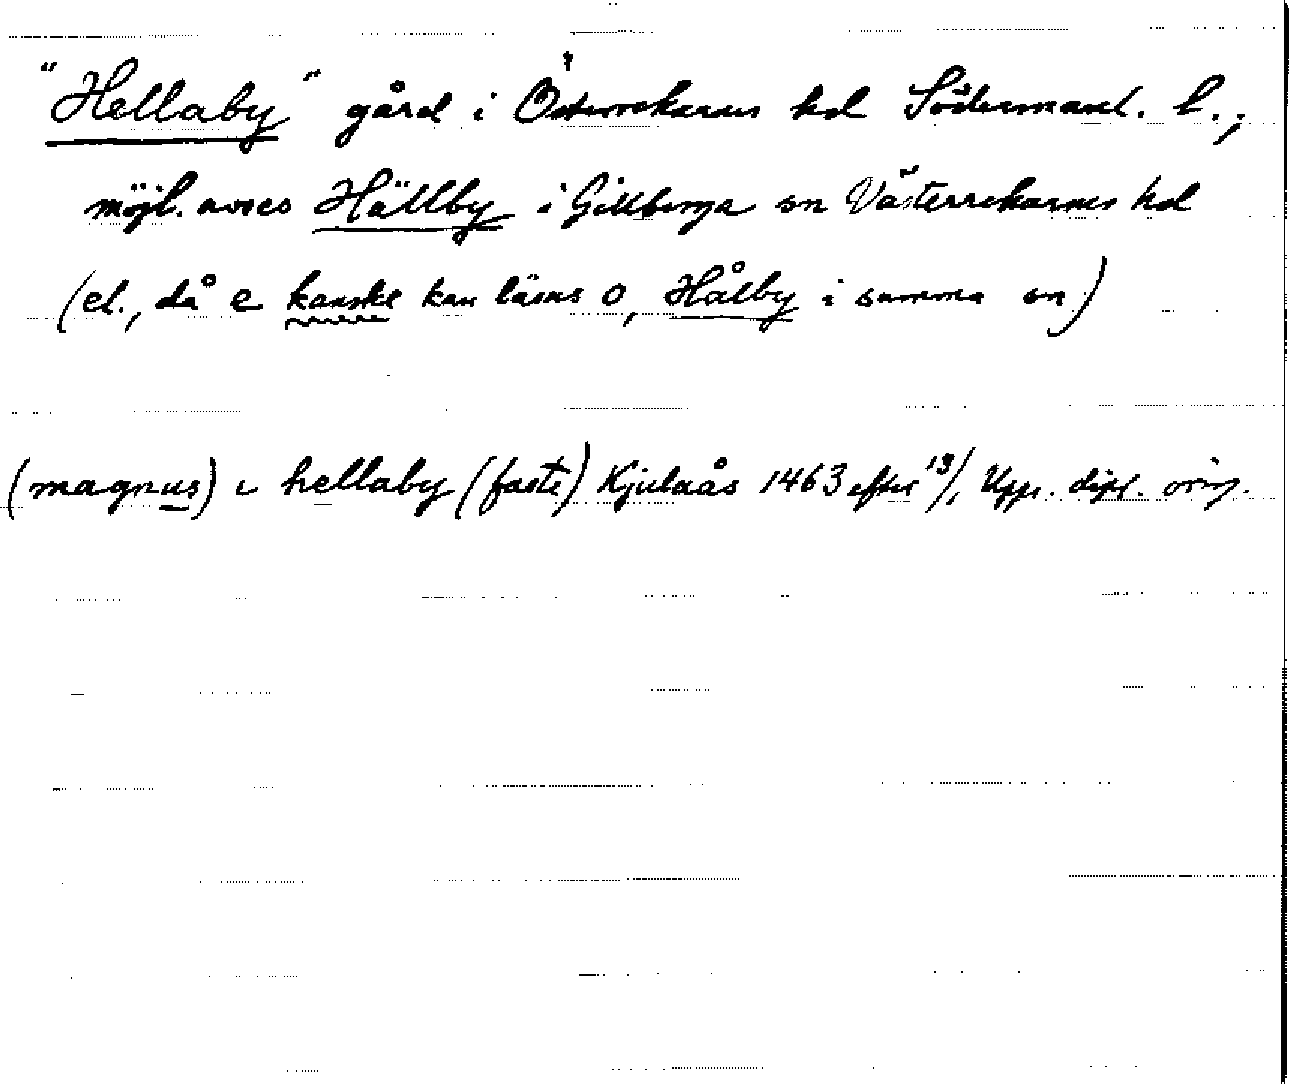 "Hellaby" gård i Österrekarnes hd Södermanl. l.;
möjl. avses Hällby i Gillberga sn Västerrekarnes hd
(el., då e kanske kan läsas o, Hålby i samma sn)
(magnus) i hellaby (faste) Kjulaås 1463 efter 13/1 Upps. dipl. orig.